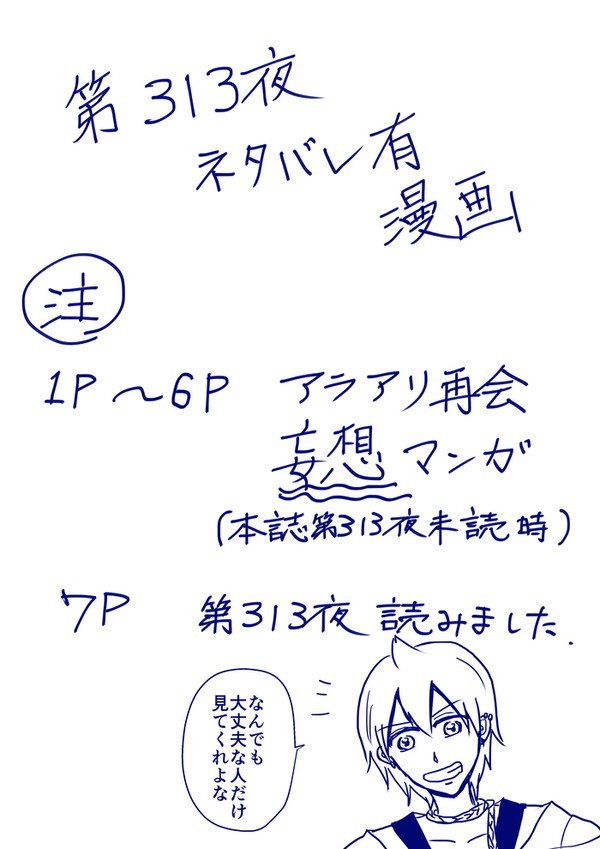 第313夜
ネタバレ有
漫画
注
1P〜6P アラアリ再会
妄想マンガ
(本誌第313夜未読時)
7P 第313夜 読みました.
なんでも
大丈夫な人だけ
見てくれよな